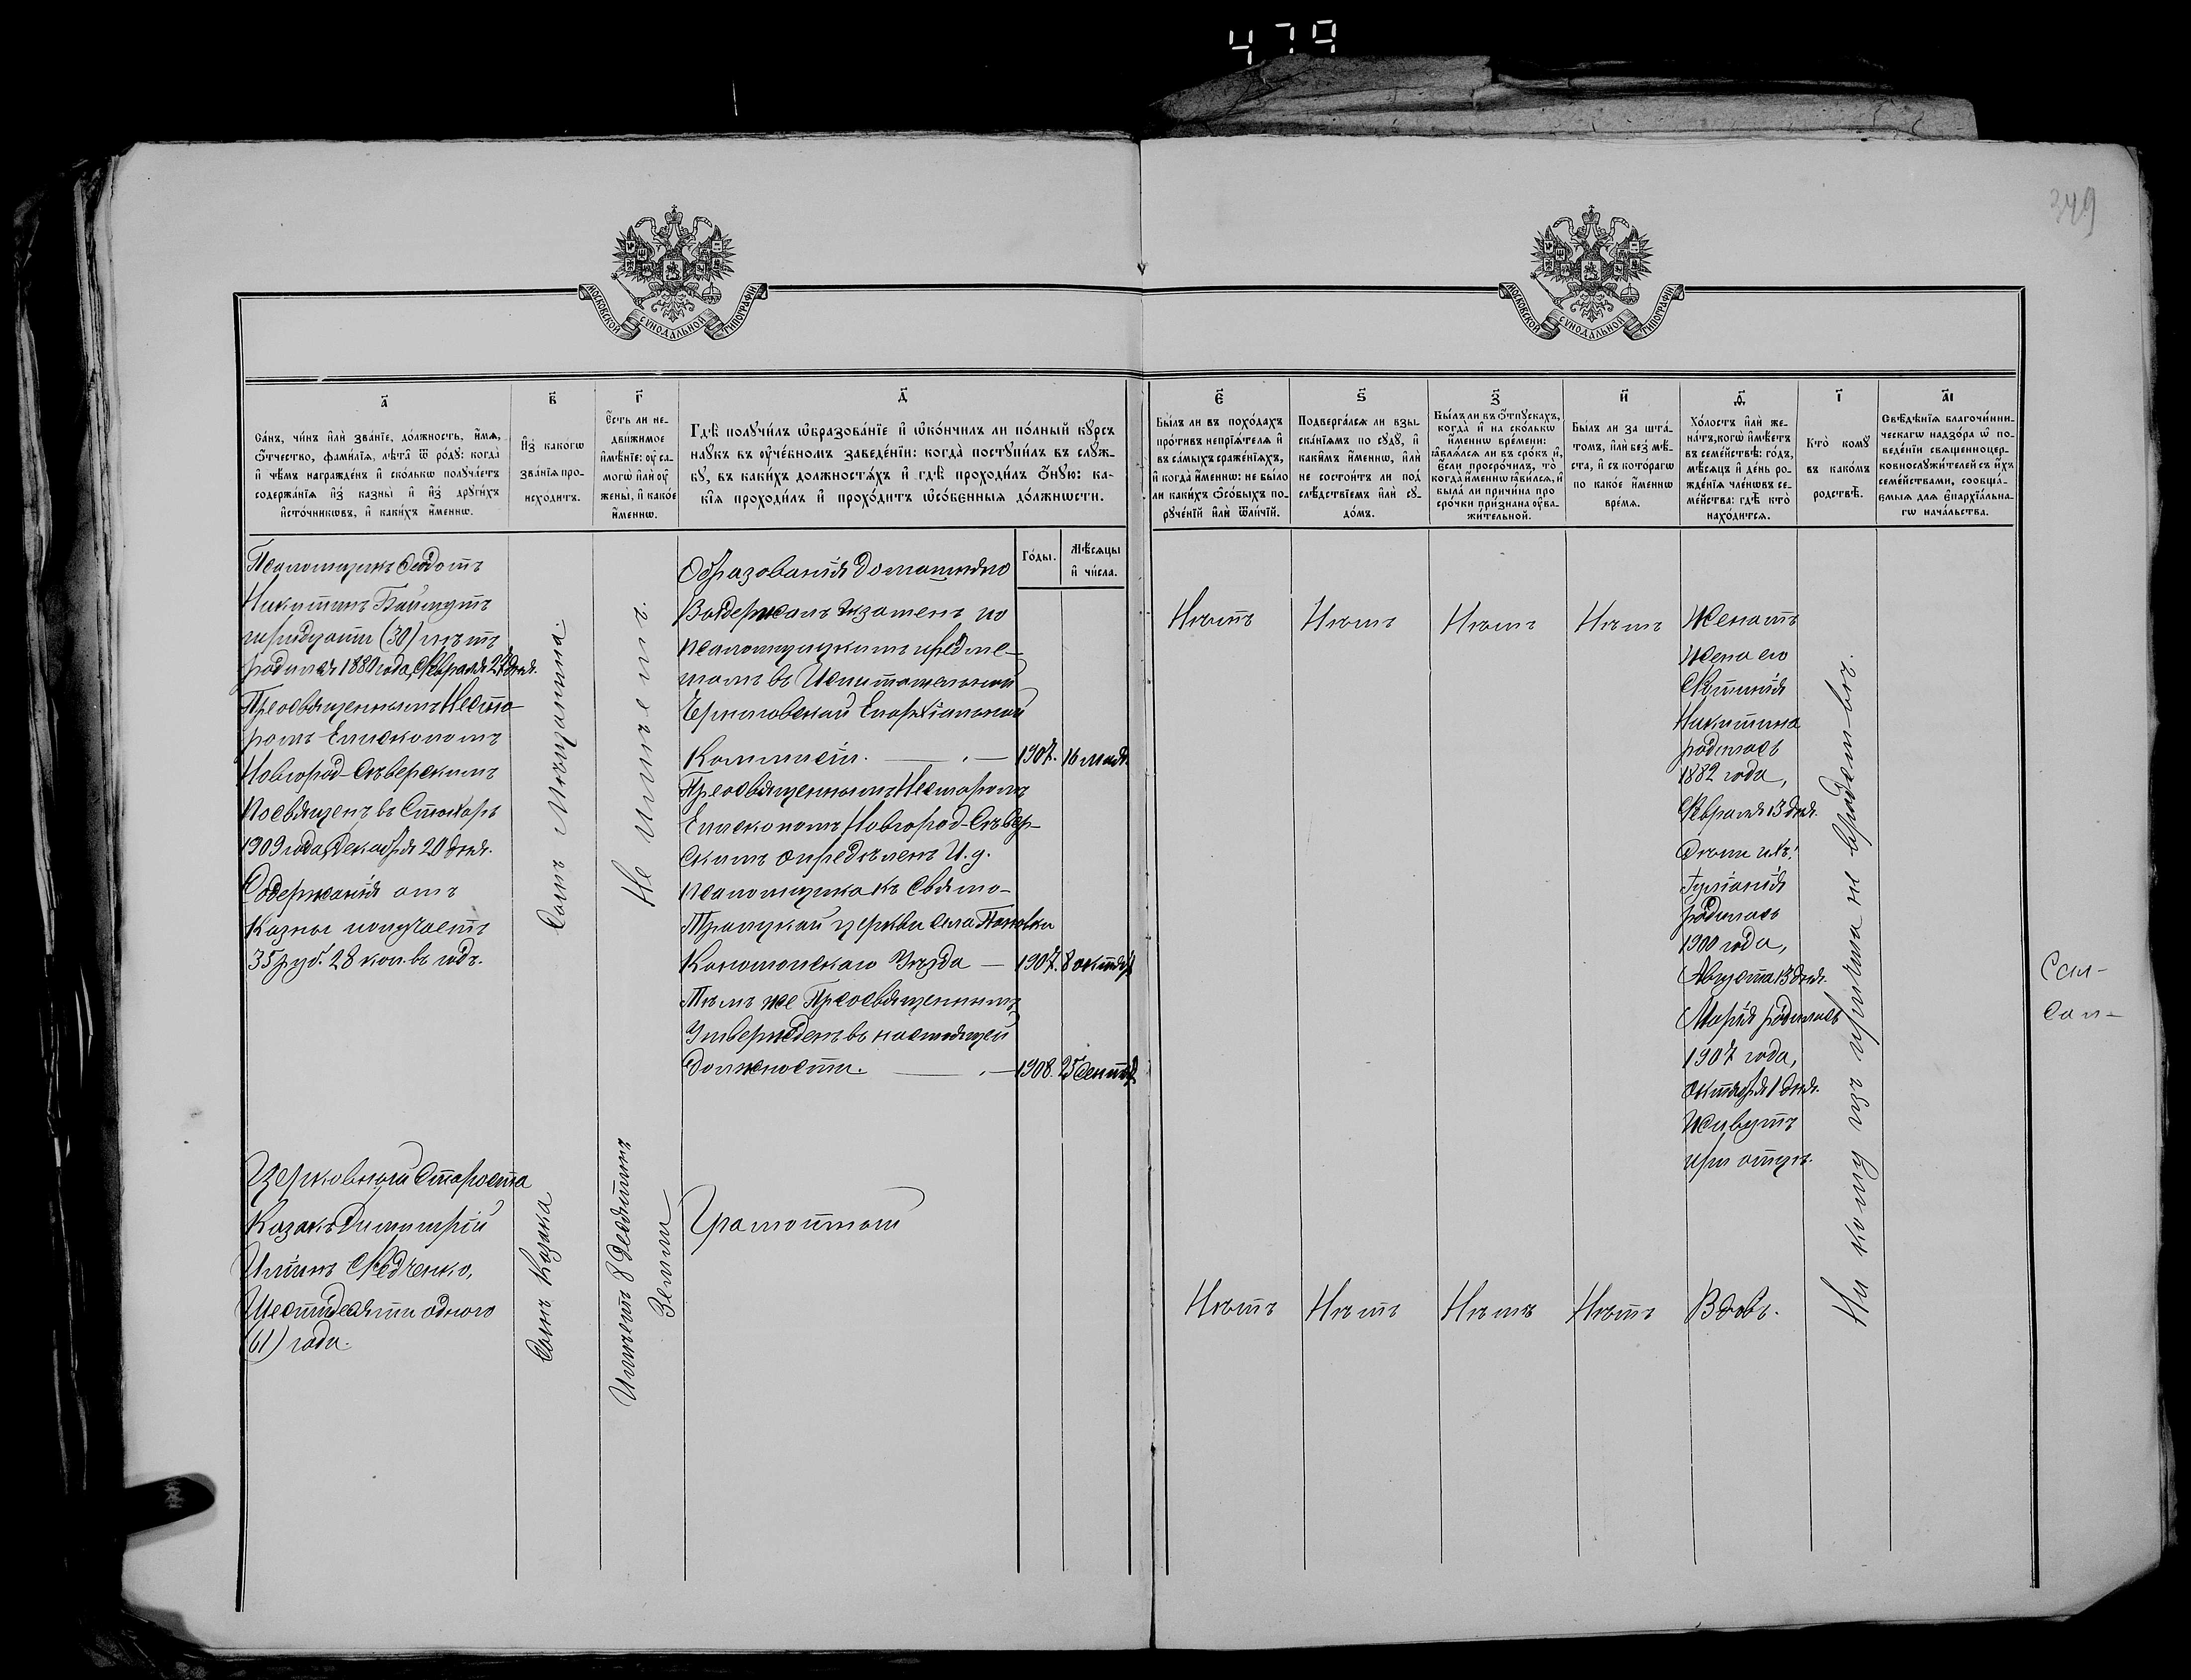 479
349
МОСКОВСКОЙ СѴНОДАЛЬНОЙ ТИПОГРАФІИ
МОСКОВСКОЙ СѴНОДАЛЬНОЙ ТИПОГРАФІИ
а҃
Са́нъ, чи́нъ и҆лѝ зва́нїе, до́лжность, и҆́мѧ,
ѻ҆́тчество, фами́лїѧ, лѣ́та ѿ ро́дꙋ: когда̀
и҆ чѣ́мъ награжде́нъ и҆ ско́лькѡ полꙋча́етъ
содержа́нїѧ и҆з̾ казны̀ и҆ и҆з̾ дрꙋги́хъ
и҆сто́чникѡвъ, и҆ каки́хъ и҆́меннѡ.
в҃
И҆з̾ како́гѡ
зва́нїѧ про-
исхо́дитъ.
г҃
Є҆́сть ли не-
дви́жимое
и҆мѣ́нїе: ᲂу҆ са-
могѡ̀ и҆лѝ ᲂу҆
жены̀, и҆ како́е
и҆́меннѡ.
д҃
Гдѣ̀ полꙋчи́лъ ѡ҆бразова́нїе и҆ ѡ҆ко́нчилъ ли по́лный кꙋ́рсъ
наꙋ́къ въ ᲂу҆че́бномъ заведе́нїи: когда̀ постꙋпи́лъ въ слꙋ́ж-
бꙋ, въ каки́хъ должностѧ́хъ и҆ гдѣ̀ проходи́лъ ѻ҆́нꙋю: ка-
кі́ѧ проходи́лъ и҆ прохо́дитъ ѡ҆со́бенныѧ до́лжнѡсти.
Го́ды.
Мѣ́сѧцы
и҆ чи́сла.
є҃
Бы́лъ ли въ похо́дахъ
про́тивъ непрїѧ́телѧ и҆
въ са́мыхъ сраже́нїѧхъ,
и҆ когда̀ и҆́меннѡ: не бы́ло
ли каки́хъ ѻ҆со́быхъ по-
рꙋче́нїй и҆лѝ ѿли́чїй.
ѕ҃
Подверга́лсѧ ли взы-
ска́нїѧмъ по сꙋдꙋ̀, и҆
каки́мъ и҆́меннѡ, и҆лѝ
не состои́тъ ли под̾
слѣ́дствїемъ и҆лѝ сꙋ-
до́мъ.
з҃
Бы́лъ ли въ ѻ҆́тпꙋскахъ,
когда̀ и҆ на ско́лькѡ
и҆́меннѡ вре́мени:
ꙗ҆влѧ́лсѧ ли въ сро́къ и҆,
є҆́сли просро́чилъ, то̀
когда̀ и҆́меннѡ ꙗ҆ви́лсѧ, и҆
была̀ ли причи́на про
сро́чки при́знана ᲂу҆ва-
жи́тельной.
и҃
Бы́лъ ли за шта́-
томъ, и҆лѝ без̾ мѣ́-
ста, и҆ съ кото́рагѡ
по како́е и҆́меннѡ
вре́мѧ.
ѳ҃
Хо́лостъ и҆лѝ же-
на́тъ, когѡ̀ и҆мѣ́етъ
въ семе́йствѣ: го́дъ,
мѣ́сѧцъ и҆ де́нь ро-
жде́нїѧ чле́нѡвъ се-
ме́йства: гдѣ̀ кто̀
нахо́дитсѧ.
і҃
Кто̀ комꙋ̀
въ како́мъ
родствѣ̀.
а҃і
Свѣ́дѣнїѧ благочи́нни-
ческагѡ надзо́ра ѡ҆ по-
веде́нїи свѧщенноцер-
ковнослꙋжи́телей съ и҆́хъ
семе́йствами, сообща́-
ємыѧ для є҆парх́їальна-
гѡ нача́льства.
Псаломщикъ Феодотъ
Никитинъ Байгутъ
тридцати (30) лѣтъ
родился 1880 года, Февраля 27 дня.
Преосвященнымъ Несто-
ромъ Епископомъ
Новгород-Сѣверскимъ
Посвященъ въ Стихарь
1909 года, Декабря 20 дня.
Содержанія отъ
Казны получаетъ
35 руб. 28 коп. въ годъ.
Сынъ Мѣщанина.
Не имѣетъ.
Образованія домашняго
Выдержалъ Экзаменъ по
псаломщицкимъ предме-
тамъ въ Испытательной
Черниговской Епархіальной
Коммисіи. — 1907. 16 мая.
Преосвященнымъ Несторомъ
Епископомъ Новгород-Сѣвер-
скимъ опредѣленъ И. д.
псаломщика къ Свято-
Троицкой церкви села Поповки
Конотопскаго Уѣзда — 1907. 8 октяб.
Тѣмъ же Преосвященнымъ
Утвержденъ въ настоящей
должности. — 1908. 25 Сентяб.
Нѣтъ
Нѣтъ
Нѣтъ
Нѣтъ
Женатъ
Жена его
Евфимія
Никитина
родилась
1882 года,
Февраля 13 дня.
Дѣти ихъ:
Гуліанія
родилась
1900 года,
Августа 13 дня.
Марія родилась
1907 года,
Октября 1 дня.
Живутъ
при отцѣ.
Ни кому изъ причта не въ родствѣ.
Сам-
Сам-
Церковный Староста
Козакъ Димитрій
Ильинъ Федченко,
Шестидесяти одного
(61) года.
Сынъ Козака
Имѣетъ 8 десятинъ
Земли
Грамотный
Нѣтъ
Нѣтъ
Нѣтъ
Нѣтъ
Вдовъ.